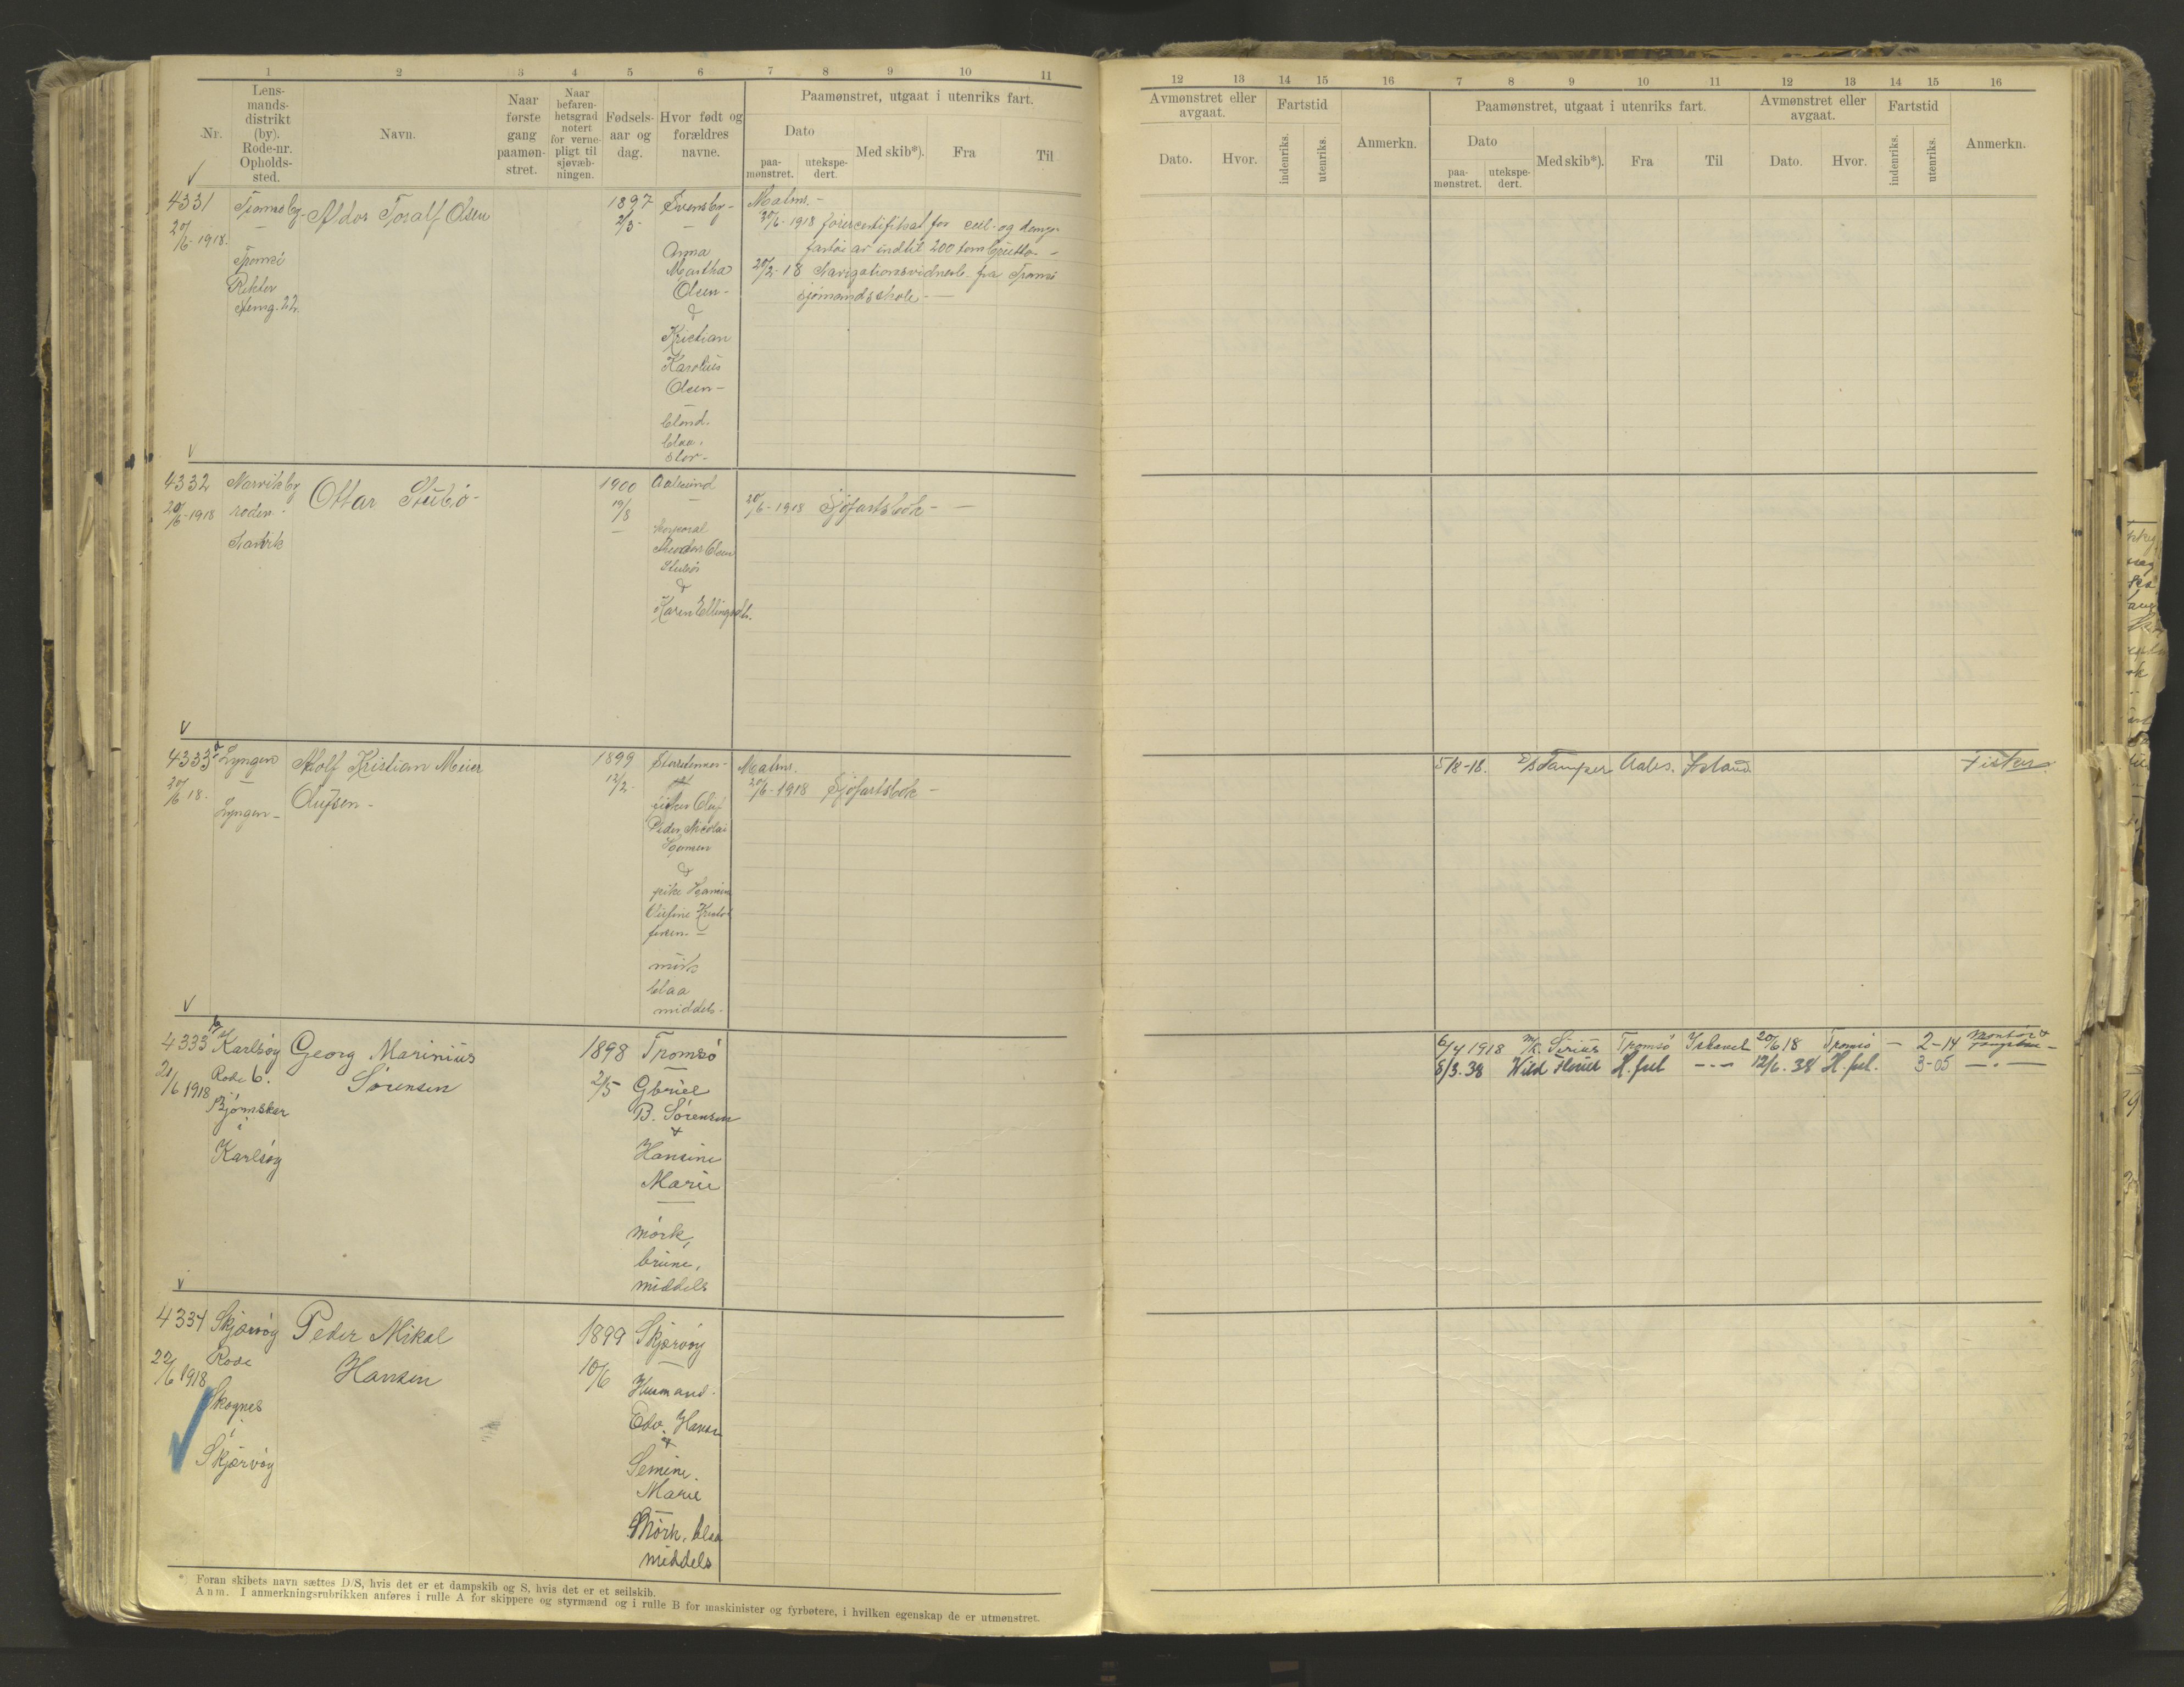 1 2 3 4 5 6 7 8 9 10 11
Nr.
Lens-
mands-
distrikt
(by).
Rode-nr.
Opholds-
sted.
Navn.
Naar
første
gang
paamøn-
stret.
Naar
befaren-
hetsgrad
notert
for verne-
pligt til
sjøvæb-
ningen.
Fødsels-
aar og
dag.
Hvor født og
forældres
navne.
Paamønstret, utgaat i utenriks fart.
Dato
paa-
mønstret.
utekspe-
dert.
Med skib*).
Fra
Til
4331
20/6-1918.
Tromsø
Rektor
Steng. 22.
Aldor Toralf Olsen
1897
2/3-
Svensby-
Anna
Martha
Olsen-
&
Kristian
Karolius
Olsen-
blond.
blaa.
stor-
Malms.-
20/6-1918 førercertifikat for seil- og damp-
fartøi av indtil 200 tons brutto-
20/2-18 Navigationsvidnesb. fra Tromsø
sjømandsskole-
4332
20/6-1918
Narvik by
roden-
Narvik
Ottar Stubø-
1900
19/8
Aalesund
Korporal
Theodor Olsen
Stubø
&
Karen Ellingsdt.
20/6-1918 Sjøfartsbok-
4333 a
20/6 18.
Lyngen
Lyngen-
Adolf Kristian Meier
Olufsen-
1899
12/2-
fisker Oluf
Peder Nicolai
Hansen
&
pike
mørk
blaa
middels-
Malms.
20/6-1918 Sjøfartsbok-
4333 b
21/6 1918
Karlsøy
Rode 6.
i
Karlsøy
Georg Marinius
Sørensen
1898
2/5
Tromsø
Gbriel
B. Sørensen
&
Hansine
Marie
mørk,
brune,
middels
4334
22/6 1918
Skjærvøy
Rode
Skognes
i
Skjærvøy
Peder Mikal
Hansen
1899
10/6
Skjærvøy
Husmand.
Edv. Hansen
&
Semine.
Marie
Mørk, blaa
middels
*) Foran skibets navn sættes D/S, hvis det er et dampskib og S, hvis det er et seilskib.
Anm. I anmerkningsrubrikken anføres i rulle A for skippere og styrmænd og i rulle B for maskinister og fyrbøtere, i hvilken egenskap de er utmønstret.
12 13 14 15 16 7 8 9 10 11 12 13 14 15 16
Avmønstret eller
avgaat.
Dato.
Hvor.
Fartstid
indenriks.
utenriks.
Anmerkn.
Paamønstret, utgaat i utenriks fart.
Dato
paa-
mønstret.
utekspe-
dert.
Med skib*).
Fra
Til
Avmønstret eller
avgaat.
Dato.
Hvor.
Fartstid
indenriks.
utenriks.
Anmerkn.
5/8-18. Aales. Island. Fisker.
6/4 1918 M/K. Sirius Tromsø Ishavet 20/6 18 Tromsø - 2-14
8/3. 38 H.fest --- 12/6. 38 H.fest. 3-05 -"-